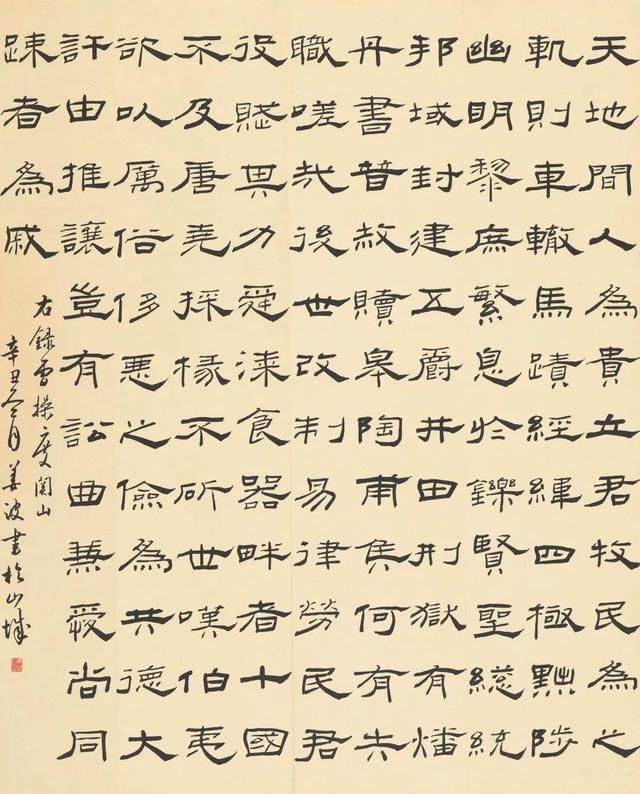 天地間人為貴立君牧民為之
軌則車轍馬蹟經緯四極黜陟
幽明黎庶繁息於鑠賢聖總統
邦域封建五爵井田刑獄有燔
丹書普赦贖皋陶甫侯何有失
職嗟哉後世改制易律勞民君
役賦其力舜漆食器畔者十國
不及唐堯採椽不斫世嘆伯夷
欲以厲俗侈惡之儉為共德大
許由推讓豈有訟曲兼愛尚同
踈者為戚
右錄曹操度関山
辛丑冬月姜波書於山城